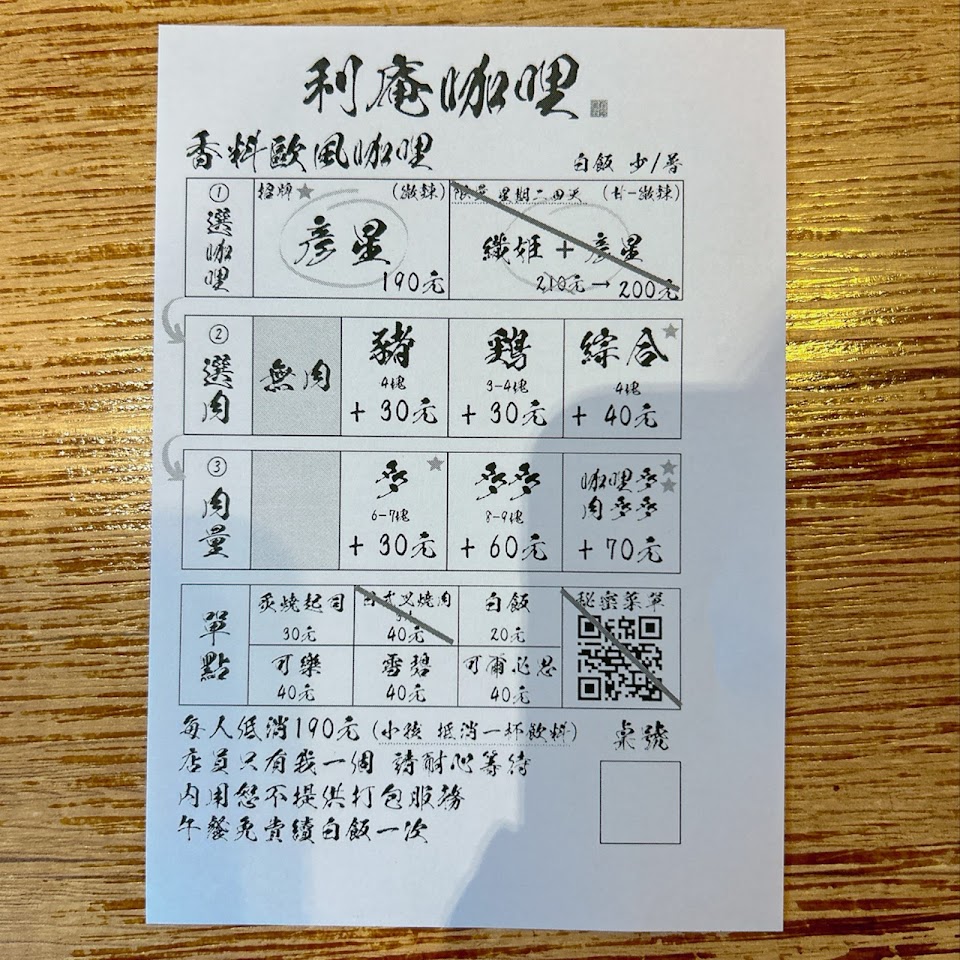 利庵咖哩
香料歐風咖哩
白飯 少/普
① 選咖哩
招牌 (微辣)
彥星
190元
星期二四天
織姬 + 彥星
210元→200元
② 選肉
無肉
豬
4塊
+ 30元
鷄
3-4塊
+ 30元
綜合
4塊
+ 40元
③ 肉量
多
6-7塊
+ 30元
多多
8-9塊
+ 60元
咖哩多
肉多多
+ 70元
單點
炙燒起司
30元
日式叉燒肉
40元
白飯
20元
秘蜜菜單
可樂
40元
雪碧
40元
可爾必思
40元
每人低消190元 (小孩 低消一杯飲料)
桌號
店員只有我一個 請耐心等待
內用恕不提供打包服務
午餐免費續白飯一次